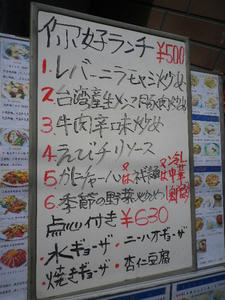 你好ランチ ¥500
1. レバーニラモヤシ炒め
2. 台湾産生メンマ豚肉炒め
3. 牛肉辛口味炒め
4. えびチリソース
5. カニチャーハン
6. 季節の野菜炒め
点心付き ¥630
・水ギョーザ ・ニーハオギョーザ
・焼きギョーザ ・杏仁豆腐